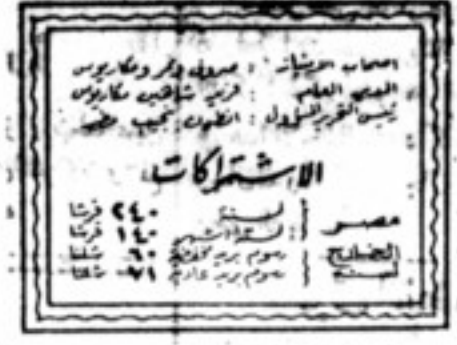 اصحاب الامتياز : صروف ونمر ومكاريوس
المدير العام : فريد شاهين مكاريوس
رئيس التحرير المسؤول : انطون نجيب مطر
الاشتراكات
مصر { لسنة ٢٤٠ قرشا
لستة اشهر ١٤٠ قرشا
الخارج رسوم بريد مخفضة ٦٠ شلنا
لسنة رسوم بريد عادية ٧١ شلنا